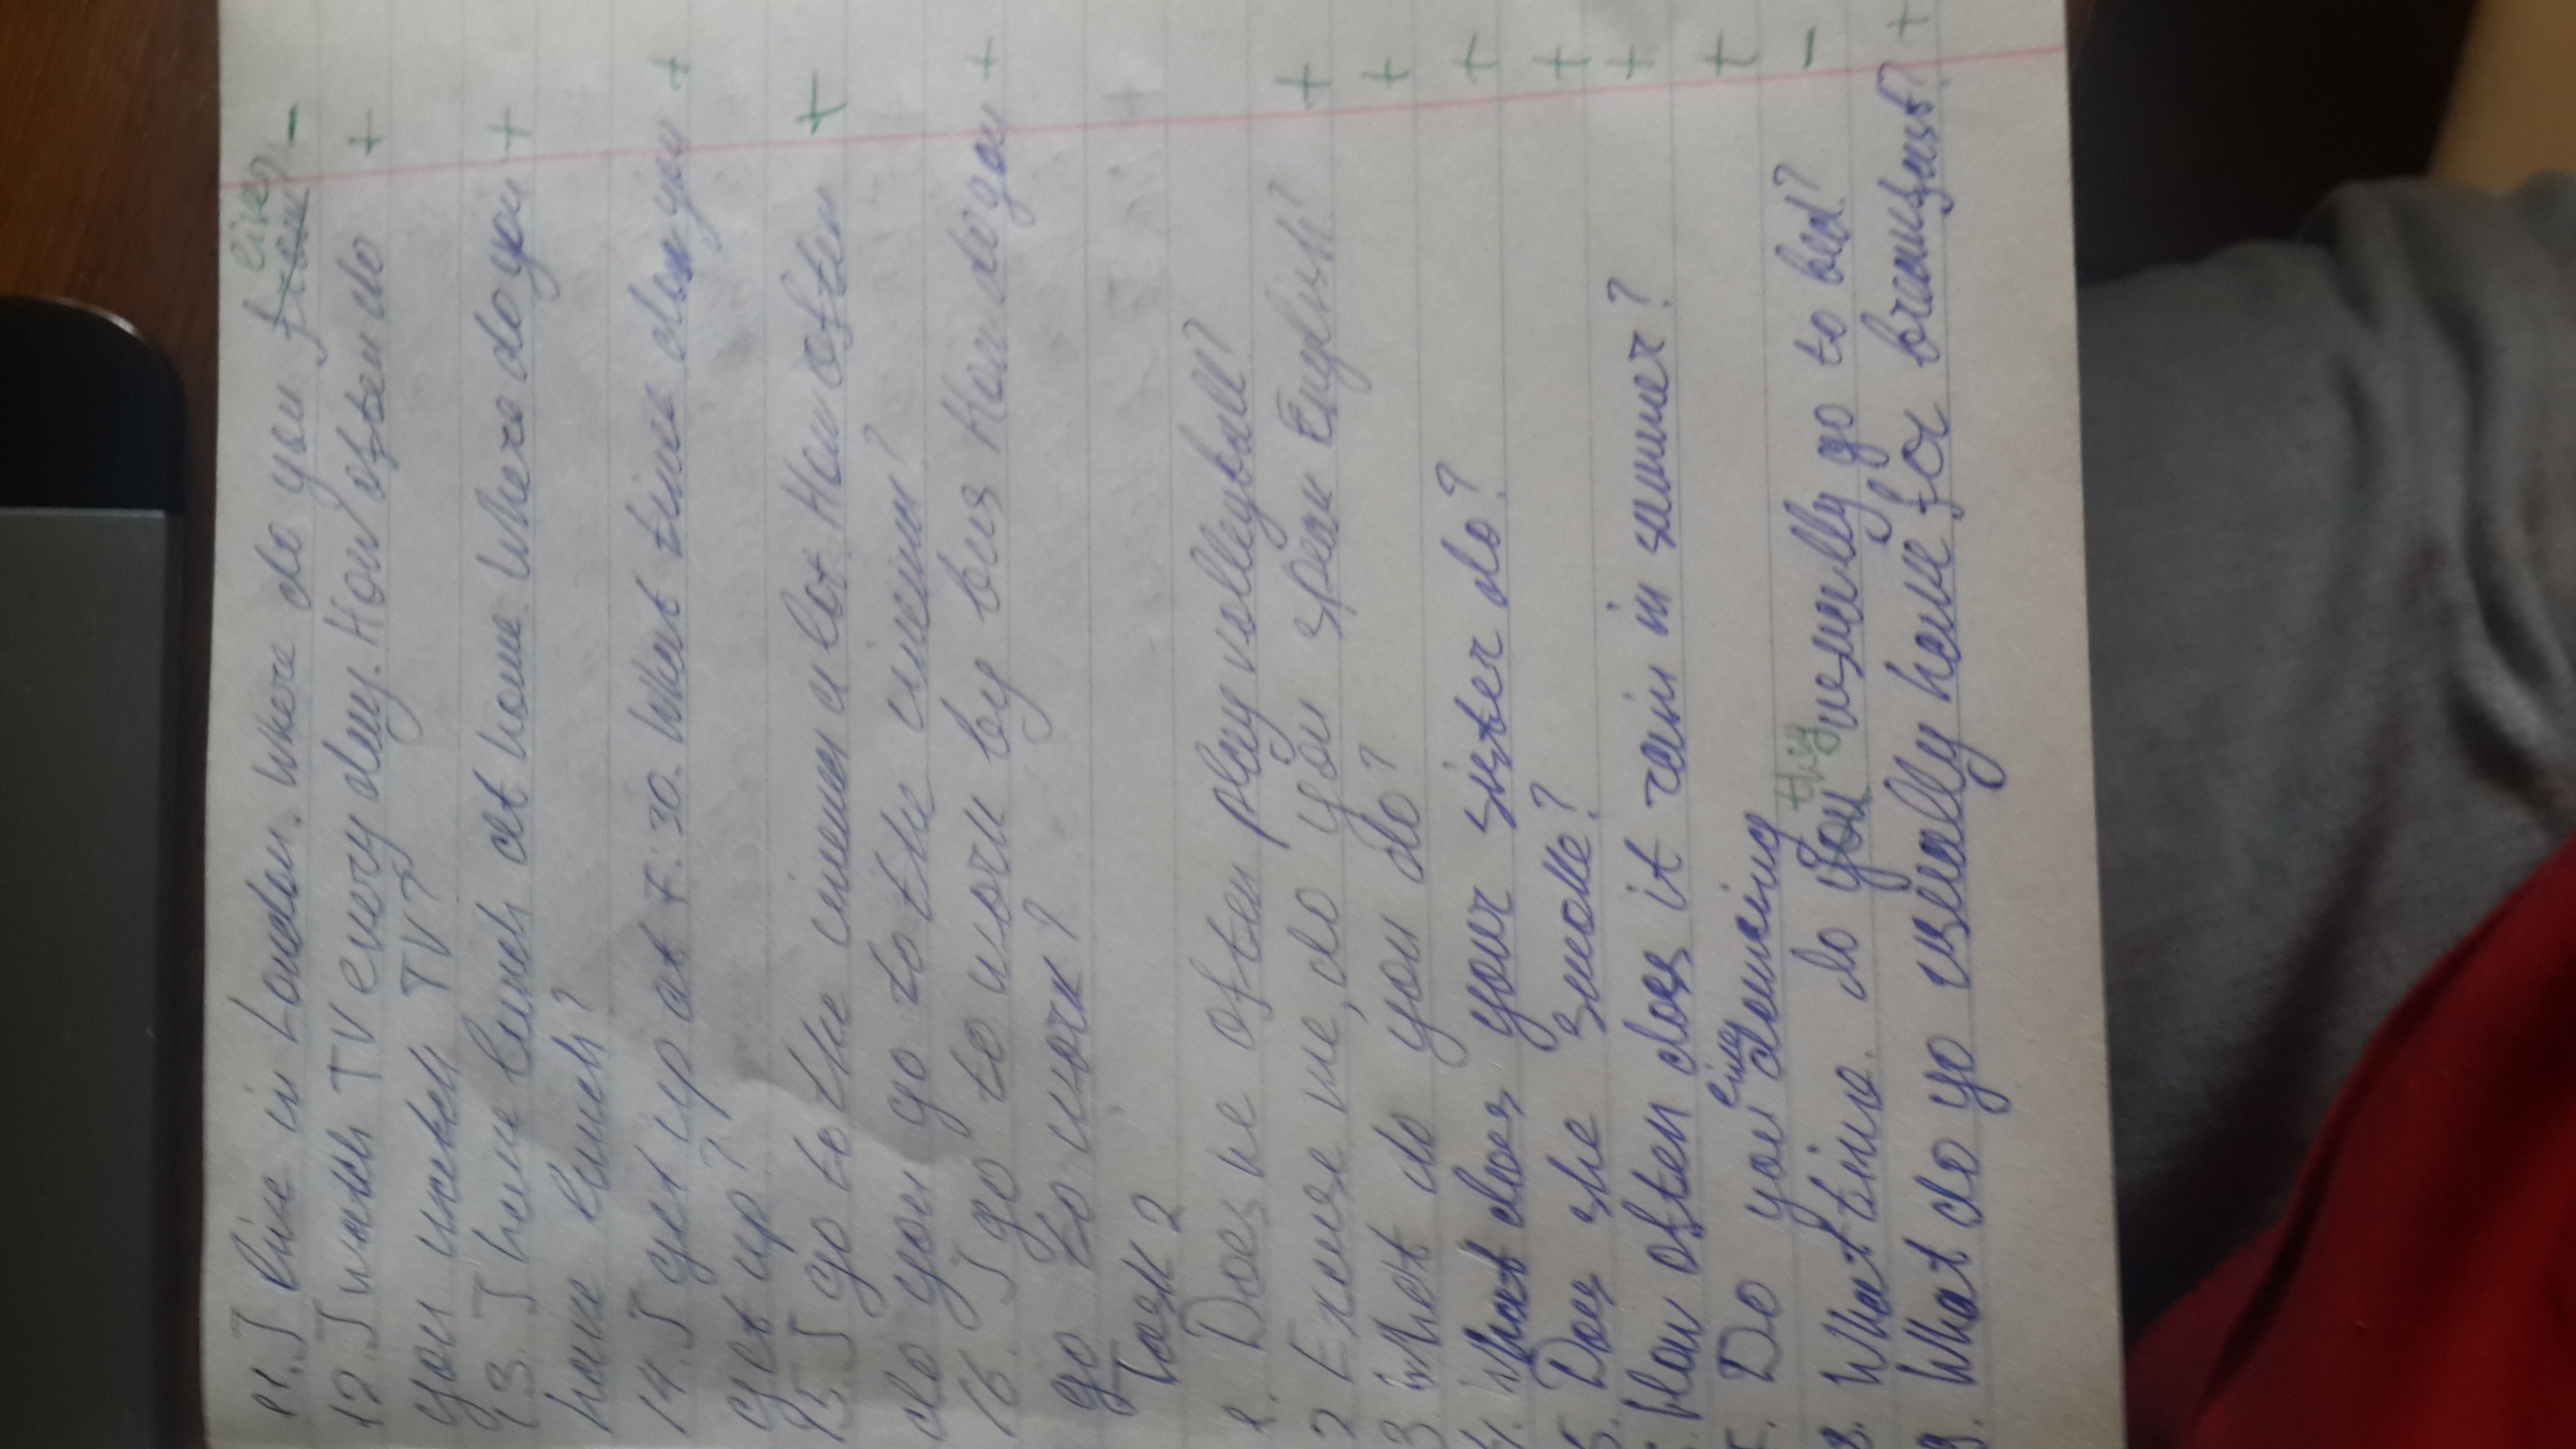 live?
11. I live in London. Where do you from? -
12. I watch TV every day. How often do +
you watch TV?
13. I have lunch at home. Where do you +
have lunch?
14. I get up at 7:30. What time do you +
get up?
15. I go to the cinema a lot. How often +
do you go to the cinema?
16. I go to work by bus How do you +
go to work?
Task 2
1. Does he often play volleyball?
2 Excuse me, do you speak English? +
3 What do you do? +
4. What does your sister do? +
5. Does she smoke? +
How often does it rain in summer? +
Do you like dancing +
they
8. What time. do you usually go to bed? -
9. What do yo usually have for breakfast? +